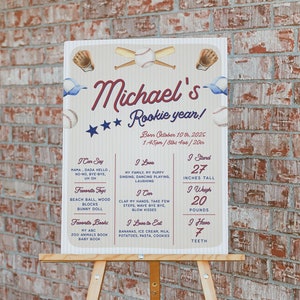 Michael's
Rookie year!
Born October 10th, 2026
1:45pm / 8lbs 4oz / 20in
I Can Say
MAMA, DADA HELLO,
NO-NO, BYE BYE,
UH OH
I Love
MY FAMILY, MY PUPPY
SINGING, DANCING PLAYING,
LAUGHING
I Stand
27
INCHES TALL
Favorite Toys
BEACH BALL, WOOD
BLOCKS
BUNNY DOLL
I Can
CLAP MY HANDS, TAKE FEW
STEPS, WAVE BYE,
BLOW KISSES
I Weigh
20
POUNDS
Favorite Books
MY ABC
ZOO ANIMALS BOOK
BABY BOOK
I Love to Eat
BANANAS, ICE CREAM, MILK,
POTATOES, PASTA, COOKIES
I Have
7
TEETH